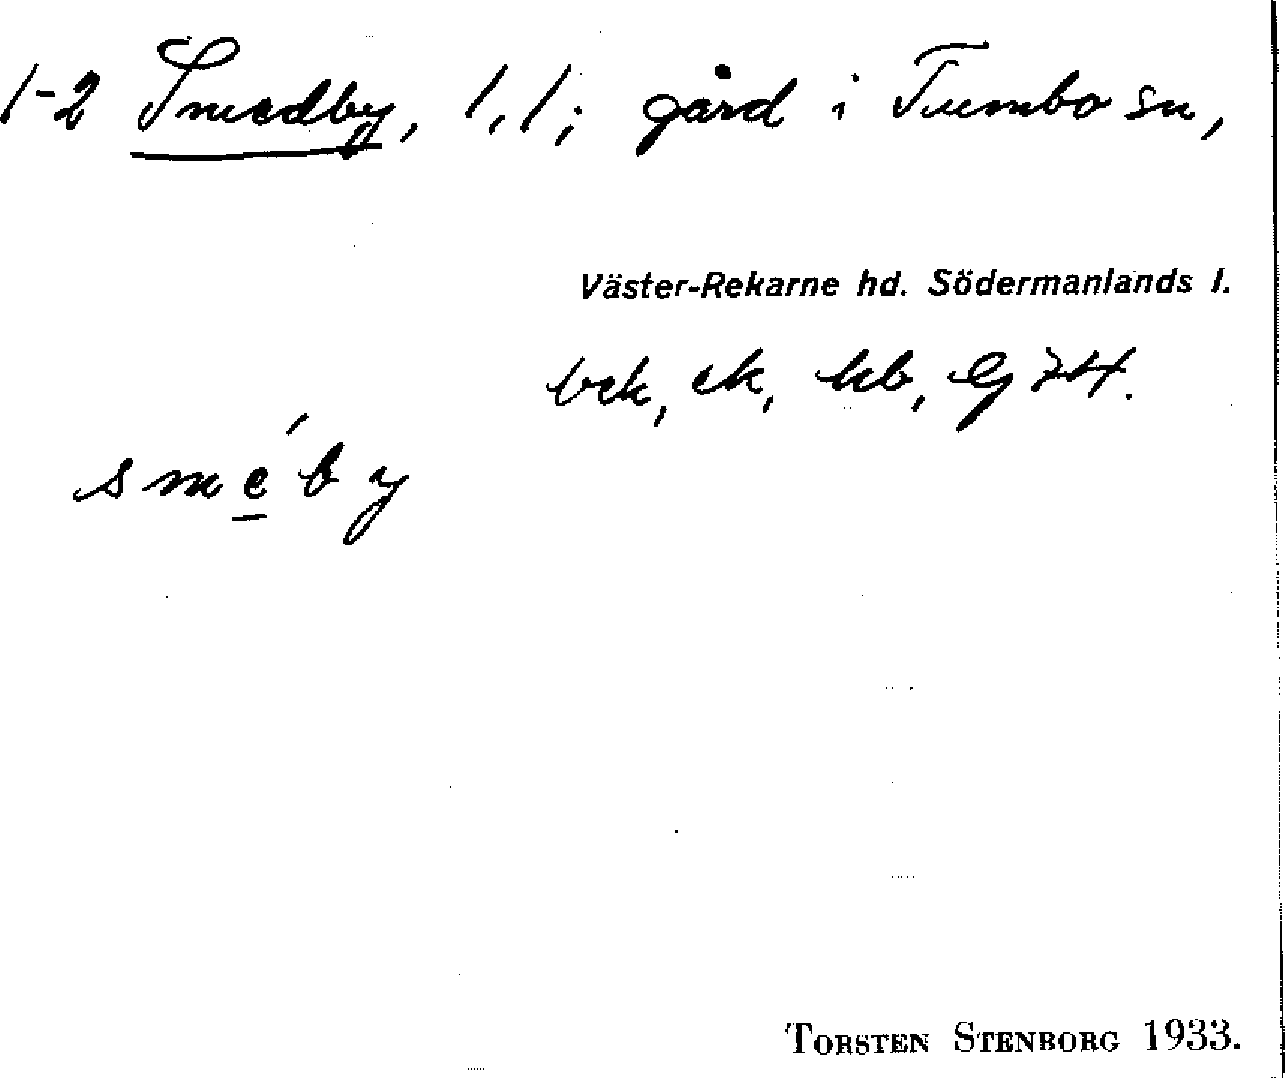 1-2 Smedby, 1, 1; gård i Tumbo sn,
Väster-Rekarne hd. Södermanlands l.
bek, ek, kb, GJ 74.
sméby
TORSTEN STENBORG 1933.